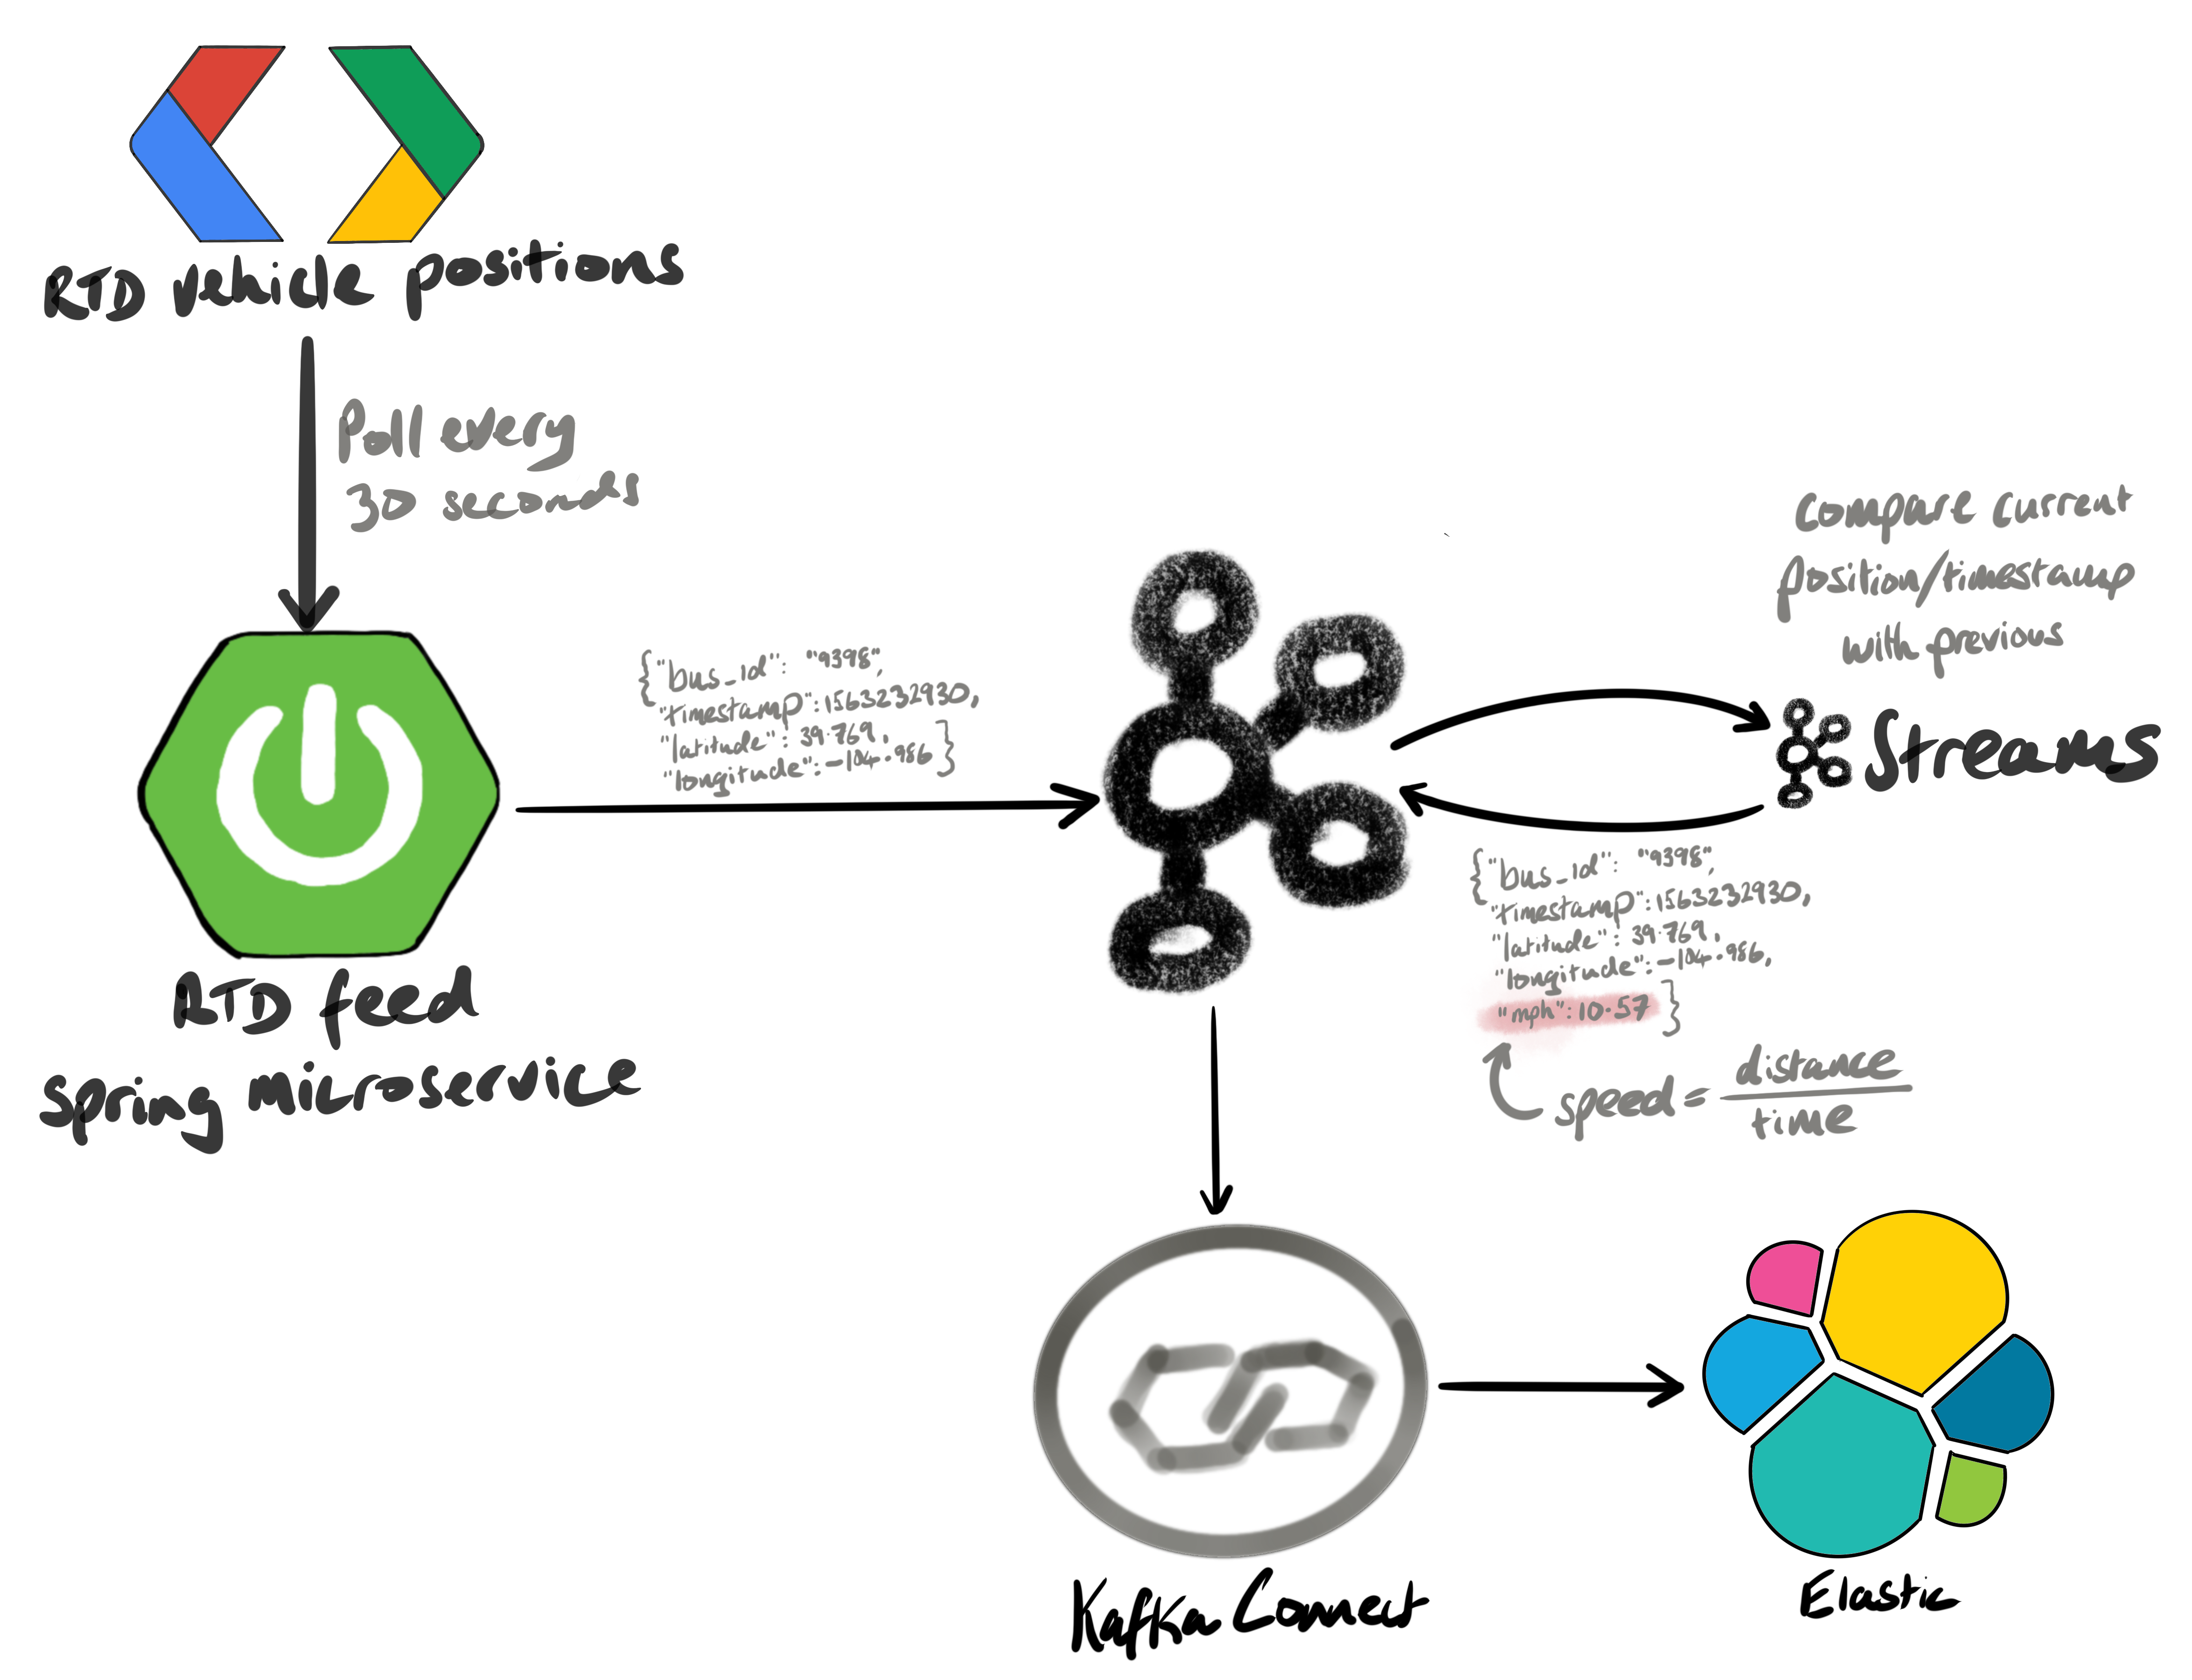 RTD vehicle positions
Poll every
30 seconds
{"bus_id": "9398",
"timestamp":1563232930,
"latitude": 39.769,
"longitude":-104.986}
RTD feed
spring microservice
compare current
position/timestamp
with previous
Streams
{"bus_id": "9398",
"timestamp":1563232930,
"latitude": 39.769,
"longitude":-104.986,
"mph":10.57}
speed= distance
time
Kafka Connect
Elastic